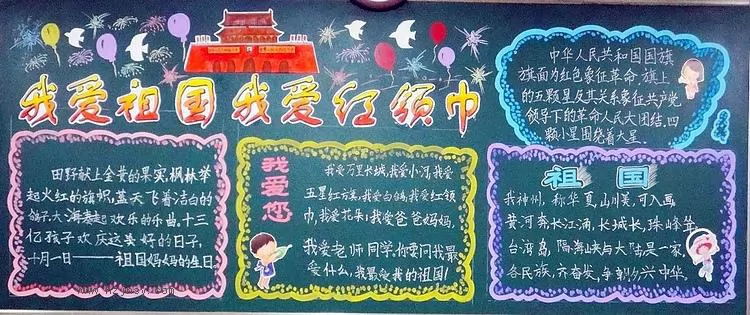 我爱祖国 我爱红领巾
田野献上金黄的果实,枫林举
起火红的旗帜,蓝天飞着洁白的
鸽子,大海奏起欢乐的乐曲。十三
亿孩子欢庆这美好的日子,
十月一日——祖国妈妈的生日
我爱您
我爱万里长城,我爱小河,我爱
五星红方旗,我爱白鸽,我爱红领
巾,我爱花朵,我爱爸爸妈妈,
我爱老师同学,你要问我最
爱什么,我最爱我的祖国!
中华人民共和国国旗
旗面为红色象征革命,旗上
的五颗星及其关系象征共产党
领导下的革命人民大团结,四
颗小星围绕着大星。
祖国
我神州,称华夏,山川美,可入画,
黄河奔,长江涌,长城长,珠峰耸,
台湾岛,隔海峡与大陆是一家,
各民族,齐奋发,争朝夕兴中华,